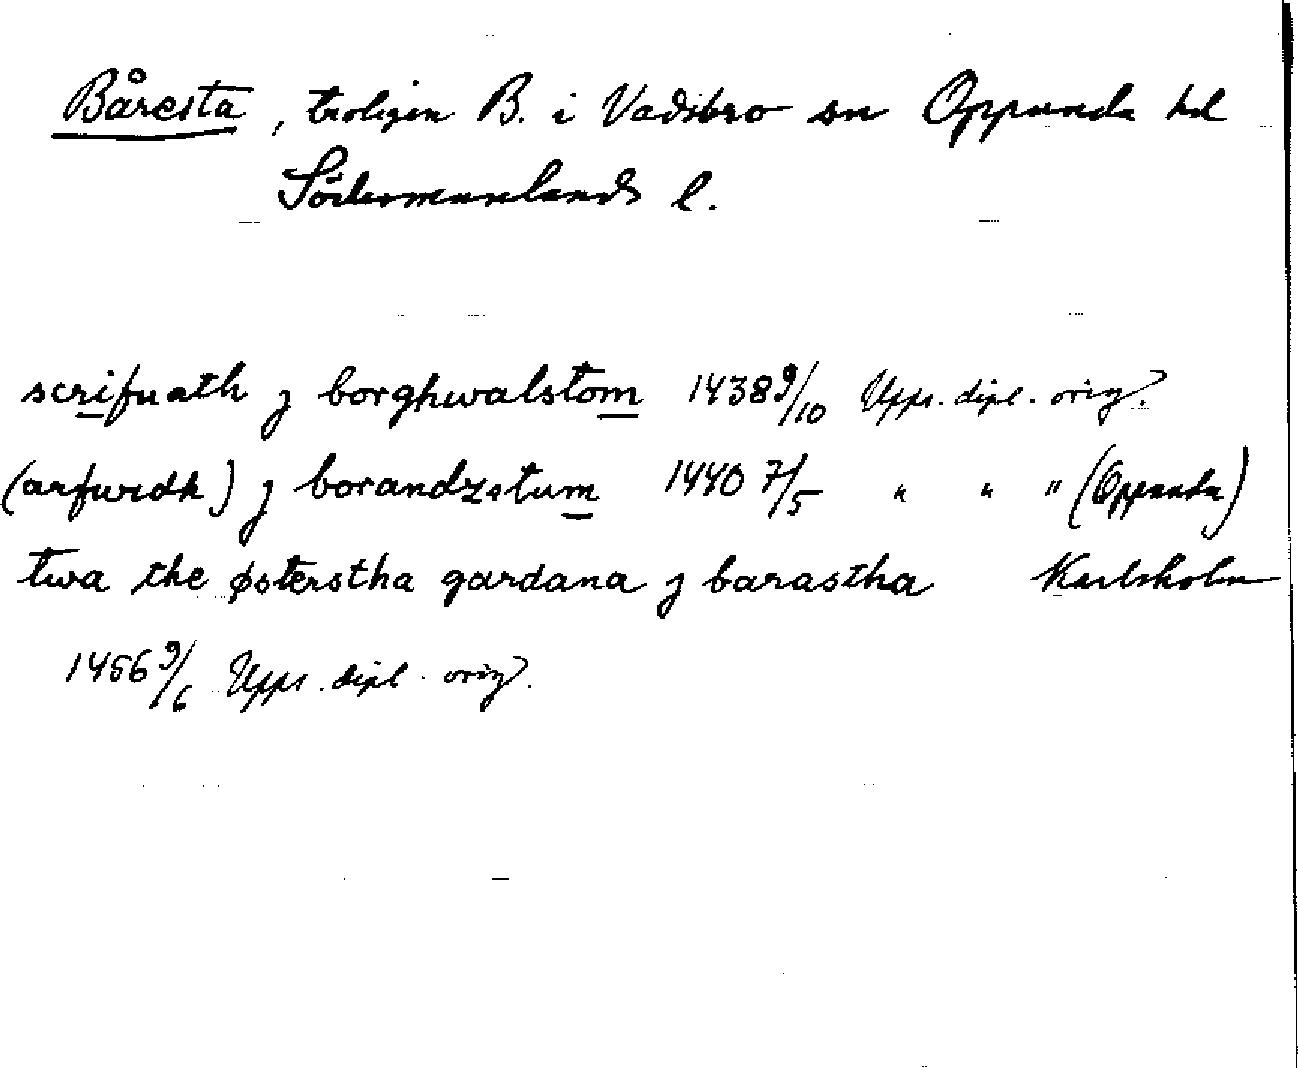 Båresta, troligen B. i Vadsbro sn Oppunda hd
Södermanlands l.
scrifuath j borghwalstom 1438 9/10 Upps. dipl. orig.
(arfwidh) j borandzstum 1440 7/5 " " " (Oppunda)
twa the østerstha gardana j barastha Karlsholm
1456 9/6 Upps. dipl. orig.